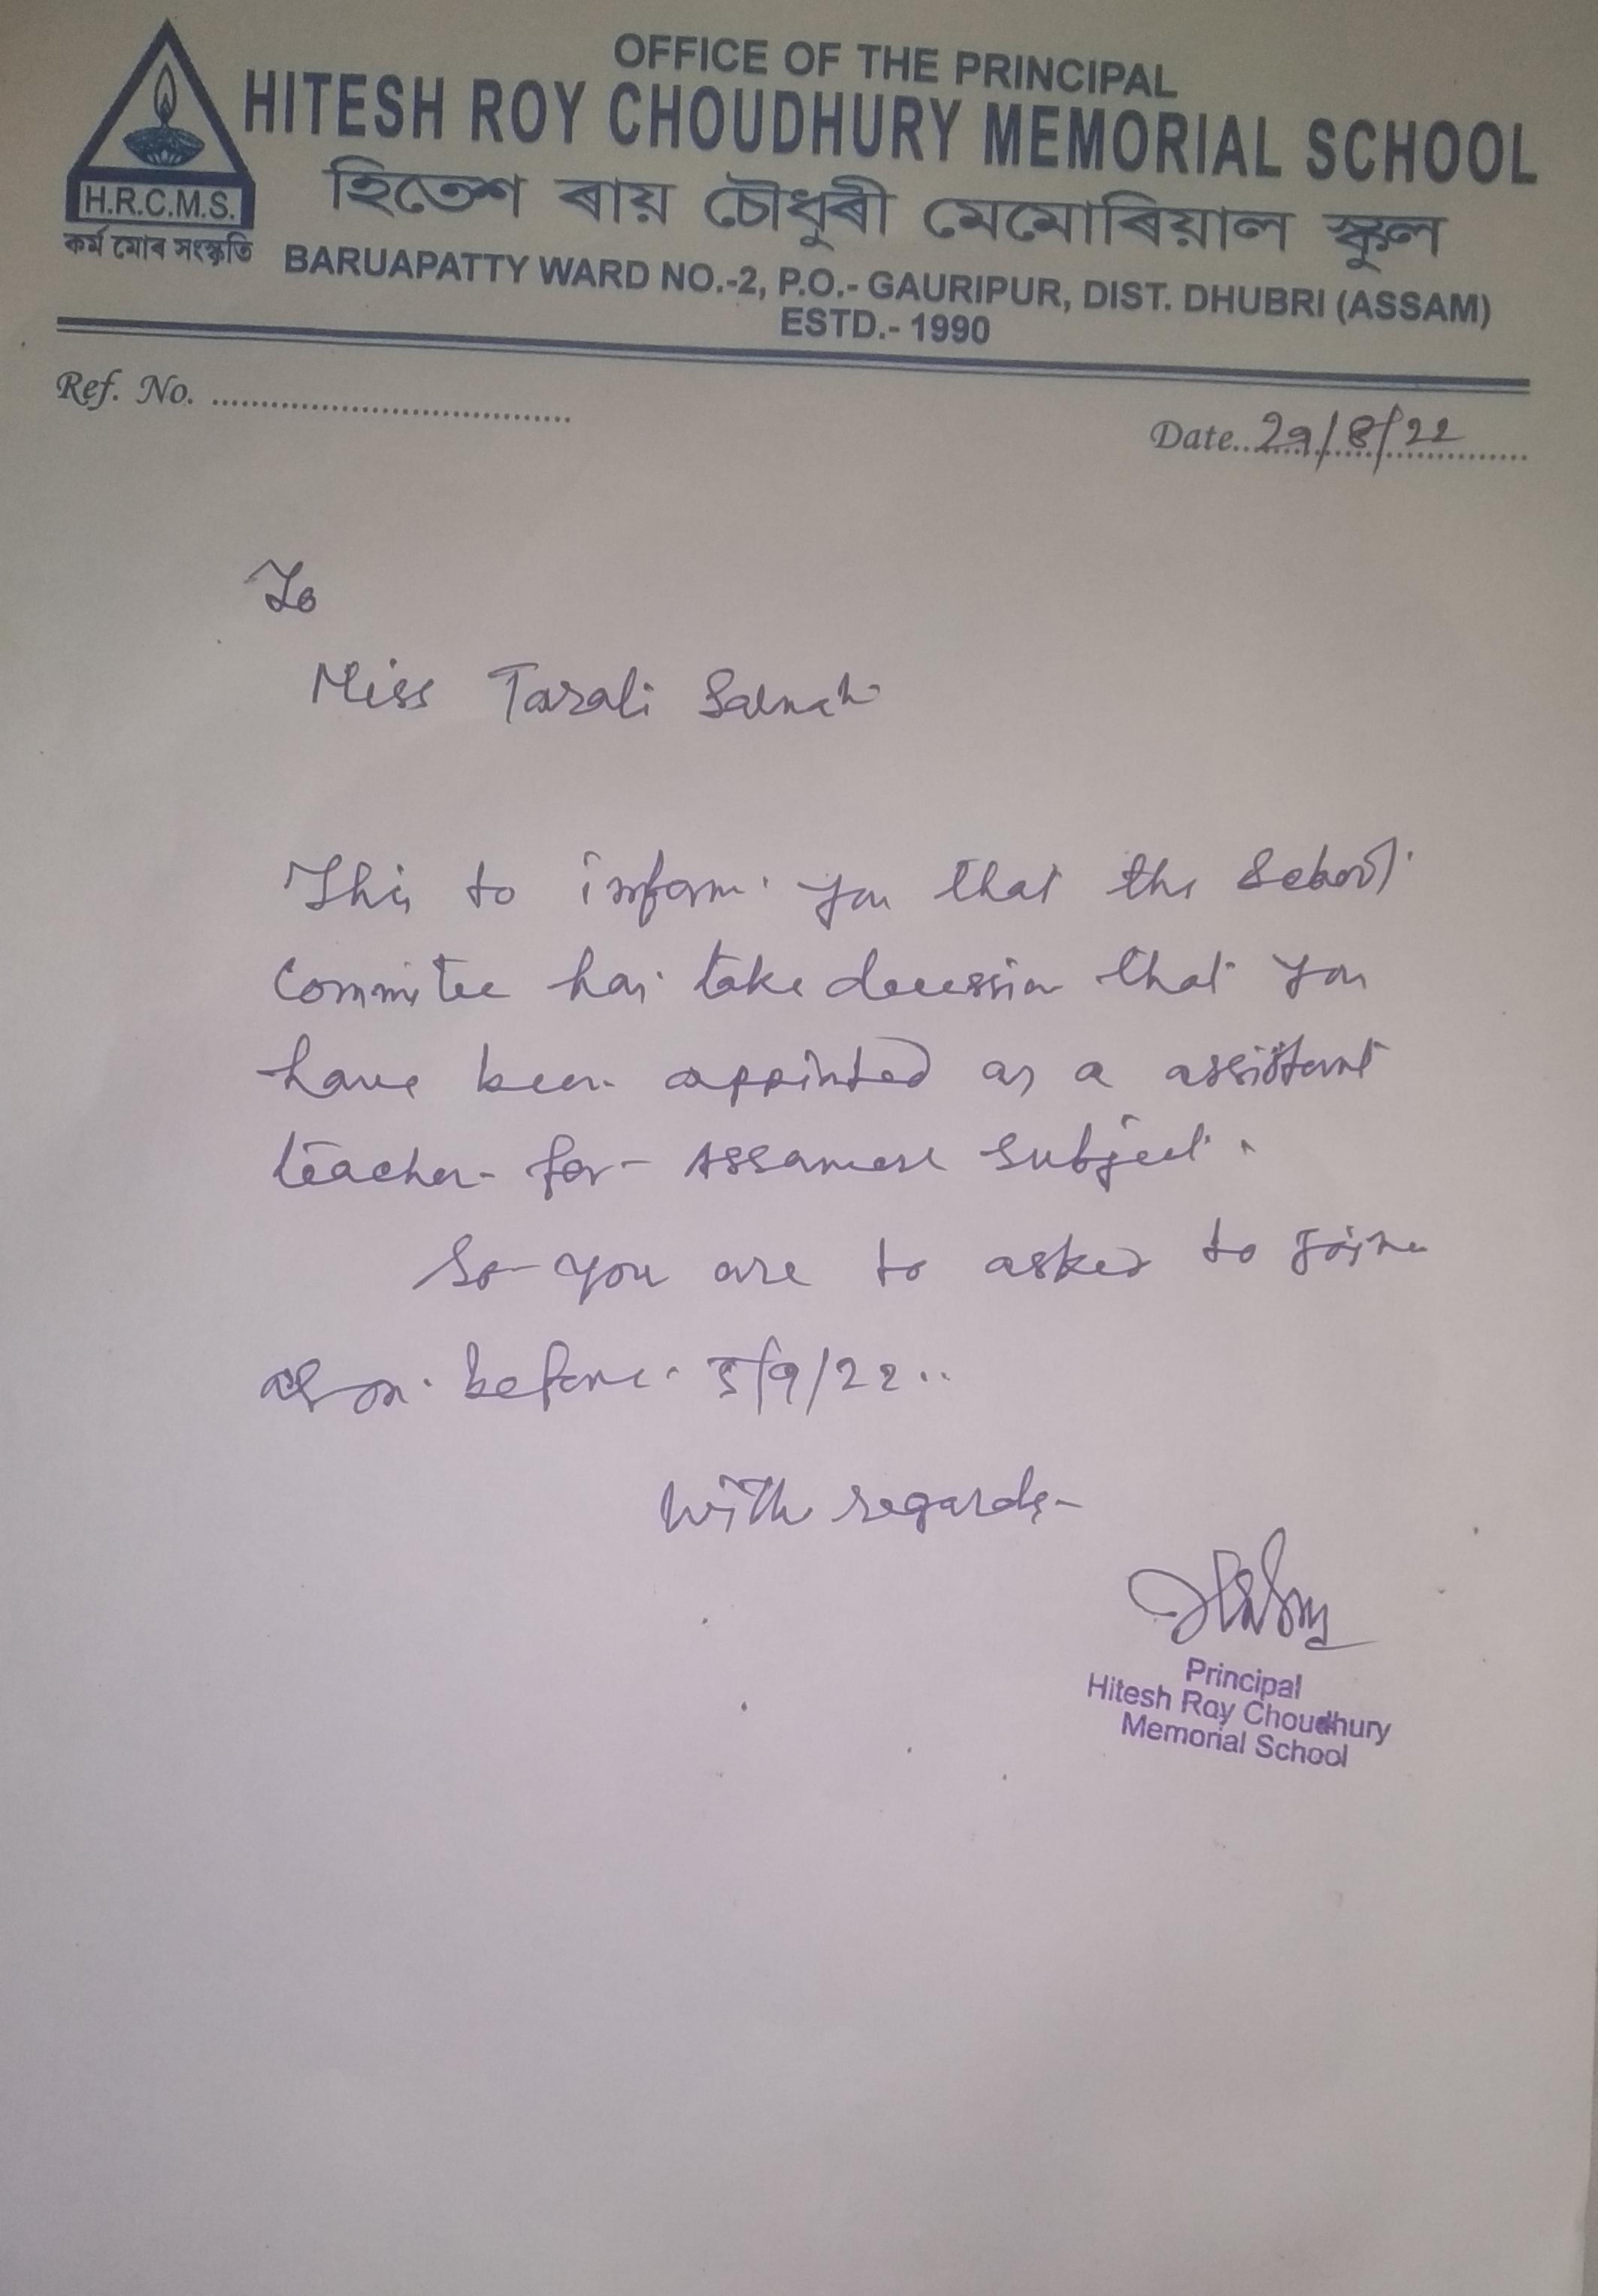 OFFICE OF THE PRINCIPAL
HITESH ROY CHOUDHURY MEMORIAL SCHOOL
হিতেশ ৰায় চৌধুৰী মেমোৰিয়াল স্কুল
H.R.C.M.S.
কৰ্ম মোৰ সংস্কৃতি
BARUAPATTY WARD NO.-2, P.O.- GAURIPUR, DIST. DHUBRI (ASSAM)
ESTD.- 1990
Ref. No. ....................................
Date..29/8/22
To
Miss Tarali
This to inform you that the School
Commitee has take decession that you
have been appointed as a assistant
teacher for Assamese subject.
So you are to asked to joine
on before 5/9/22..
With regards-
Principal
Hitesh Roy Choudhury
Memorial School